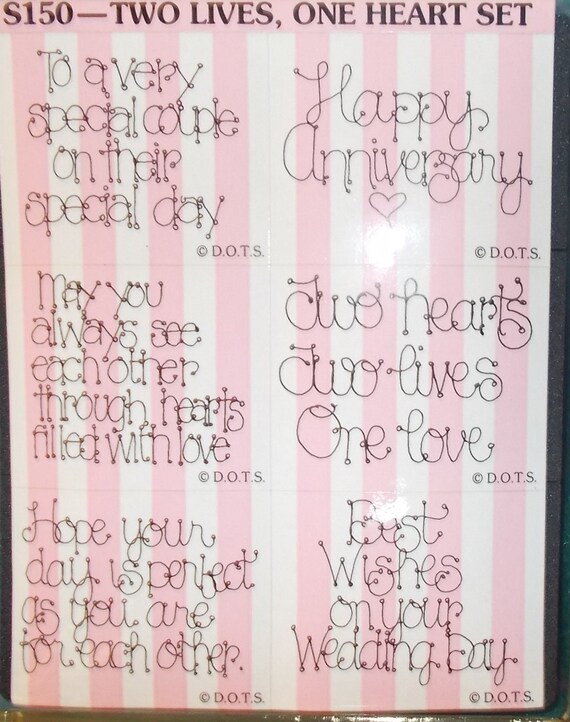 S150—TWO LIVES, ONE HEART SET
To a very
special couple
on their
special day
© D.O.T.S.
Happy
Anniversary
© D.O.T.S.
May you
always see
each other
through hearts
filled with love
© D.O.T.S.
Two hearts
Two lives
One love
© D.O.T.S.
Hope your
day is perfect
as you are
for each other.
© D.O.T.S.
Best
Wishes
on your
Wedding Day
© D.O.T.S.